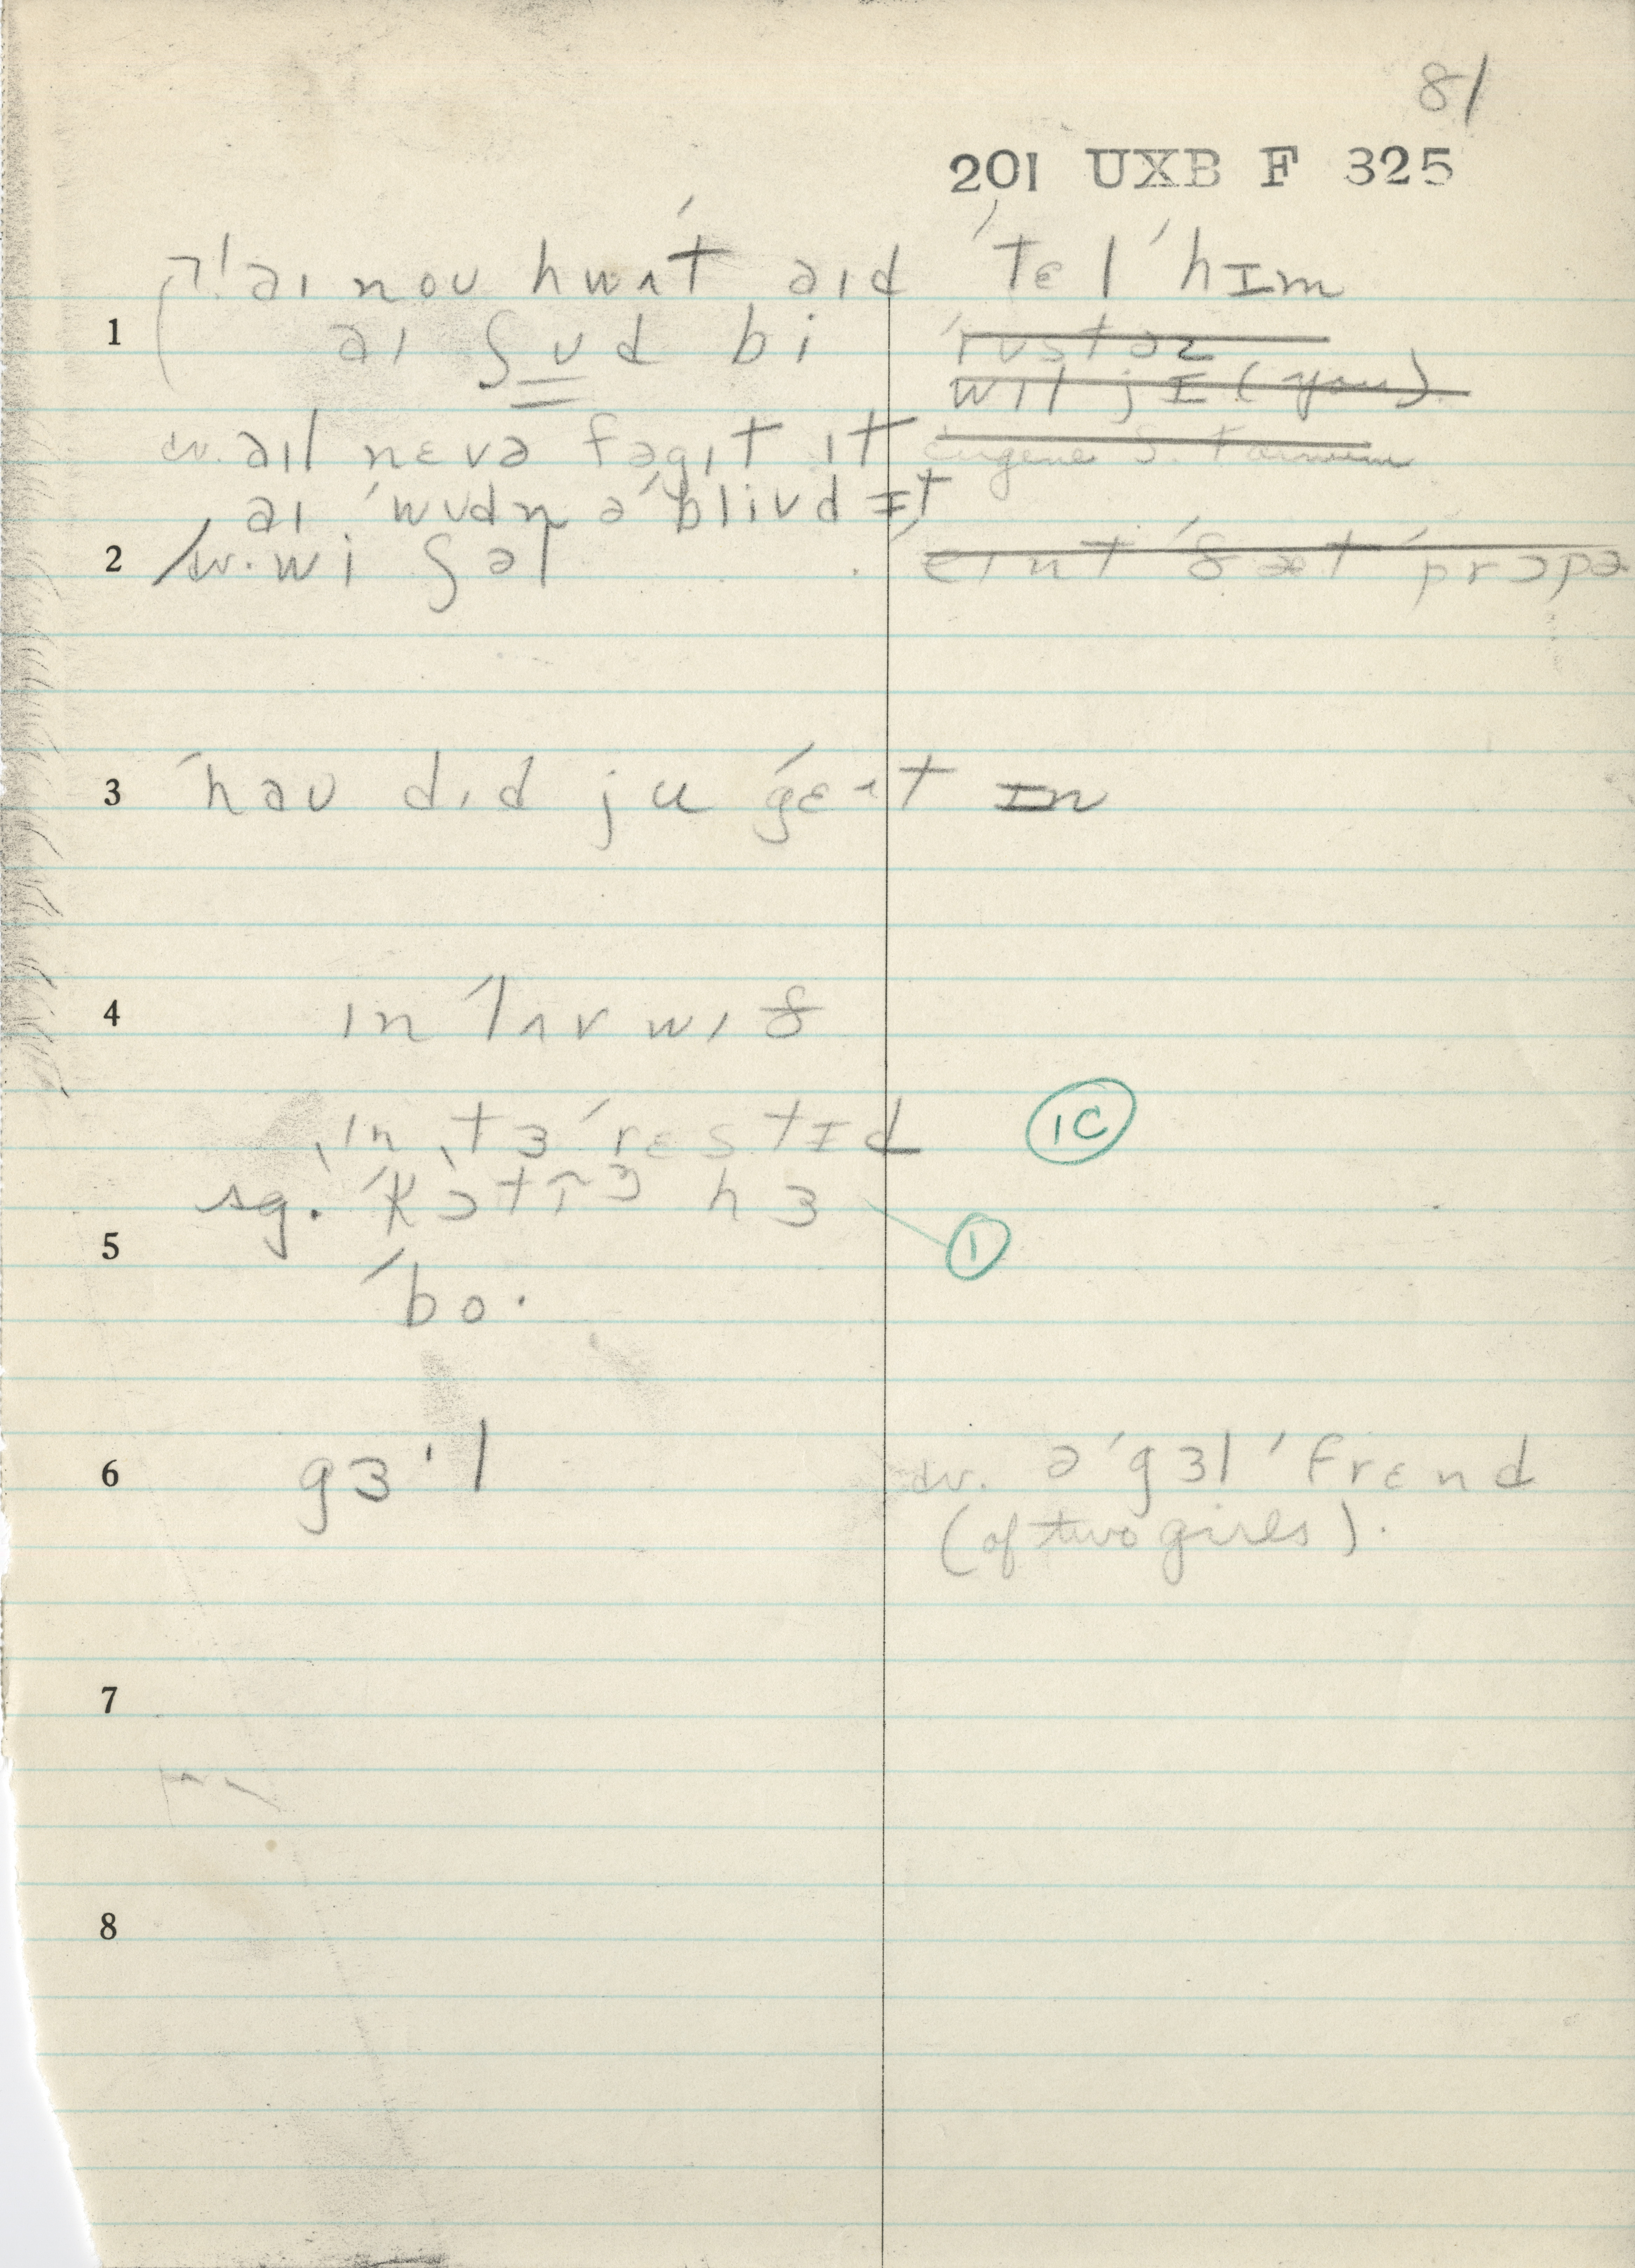 81
201 UXB F 325
aɪ noʊ hwʌt aɪd ˈtɛl ˈhɪm
1 aɪ ʃʊd bi
wɪl jɪ (you).
cv. aɪl nɛvə fəgɪt ɪt
aɪ ˈwʊdn ə ˈblivd ɪt
2 cv. wi ʃəl eɪnt ˈðæt ˈprɔpə
3 ˈhaʊ dɪd ju ˈgɛʌt ɪn
4 ɪn ˈlʌv wɪð
ˌɪnˌtɜˈrɛstɪd 1C
sg. ˈkɔtɪɜ hɜ
5 1
ˈbo·
6 gɜ·l cv. ə ˈgɜl ˈfrɛnd
(of two girls).
7
8